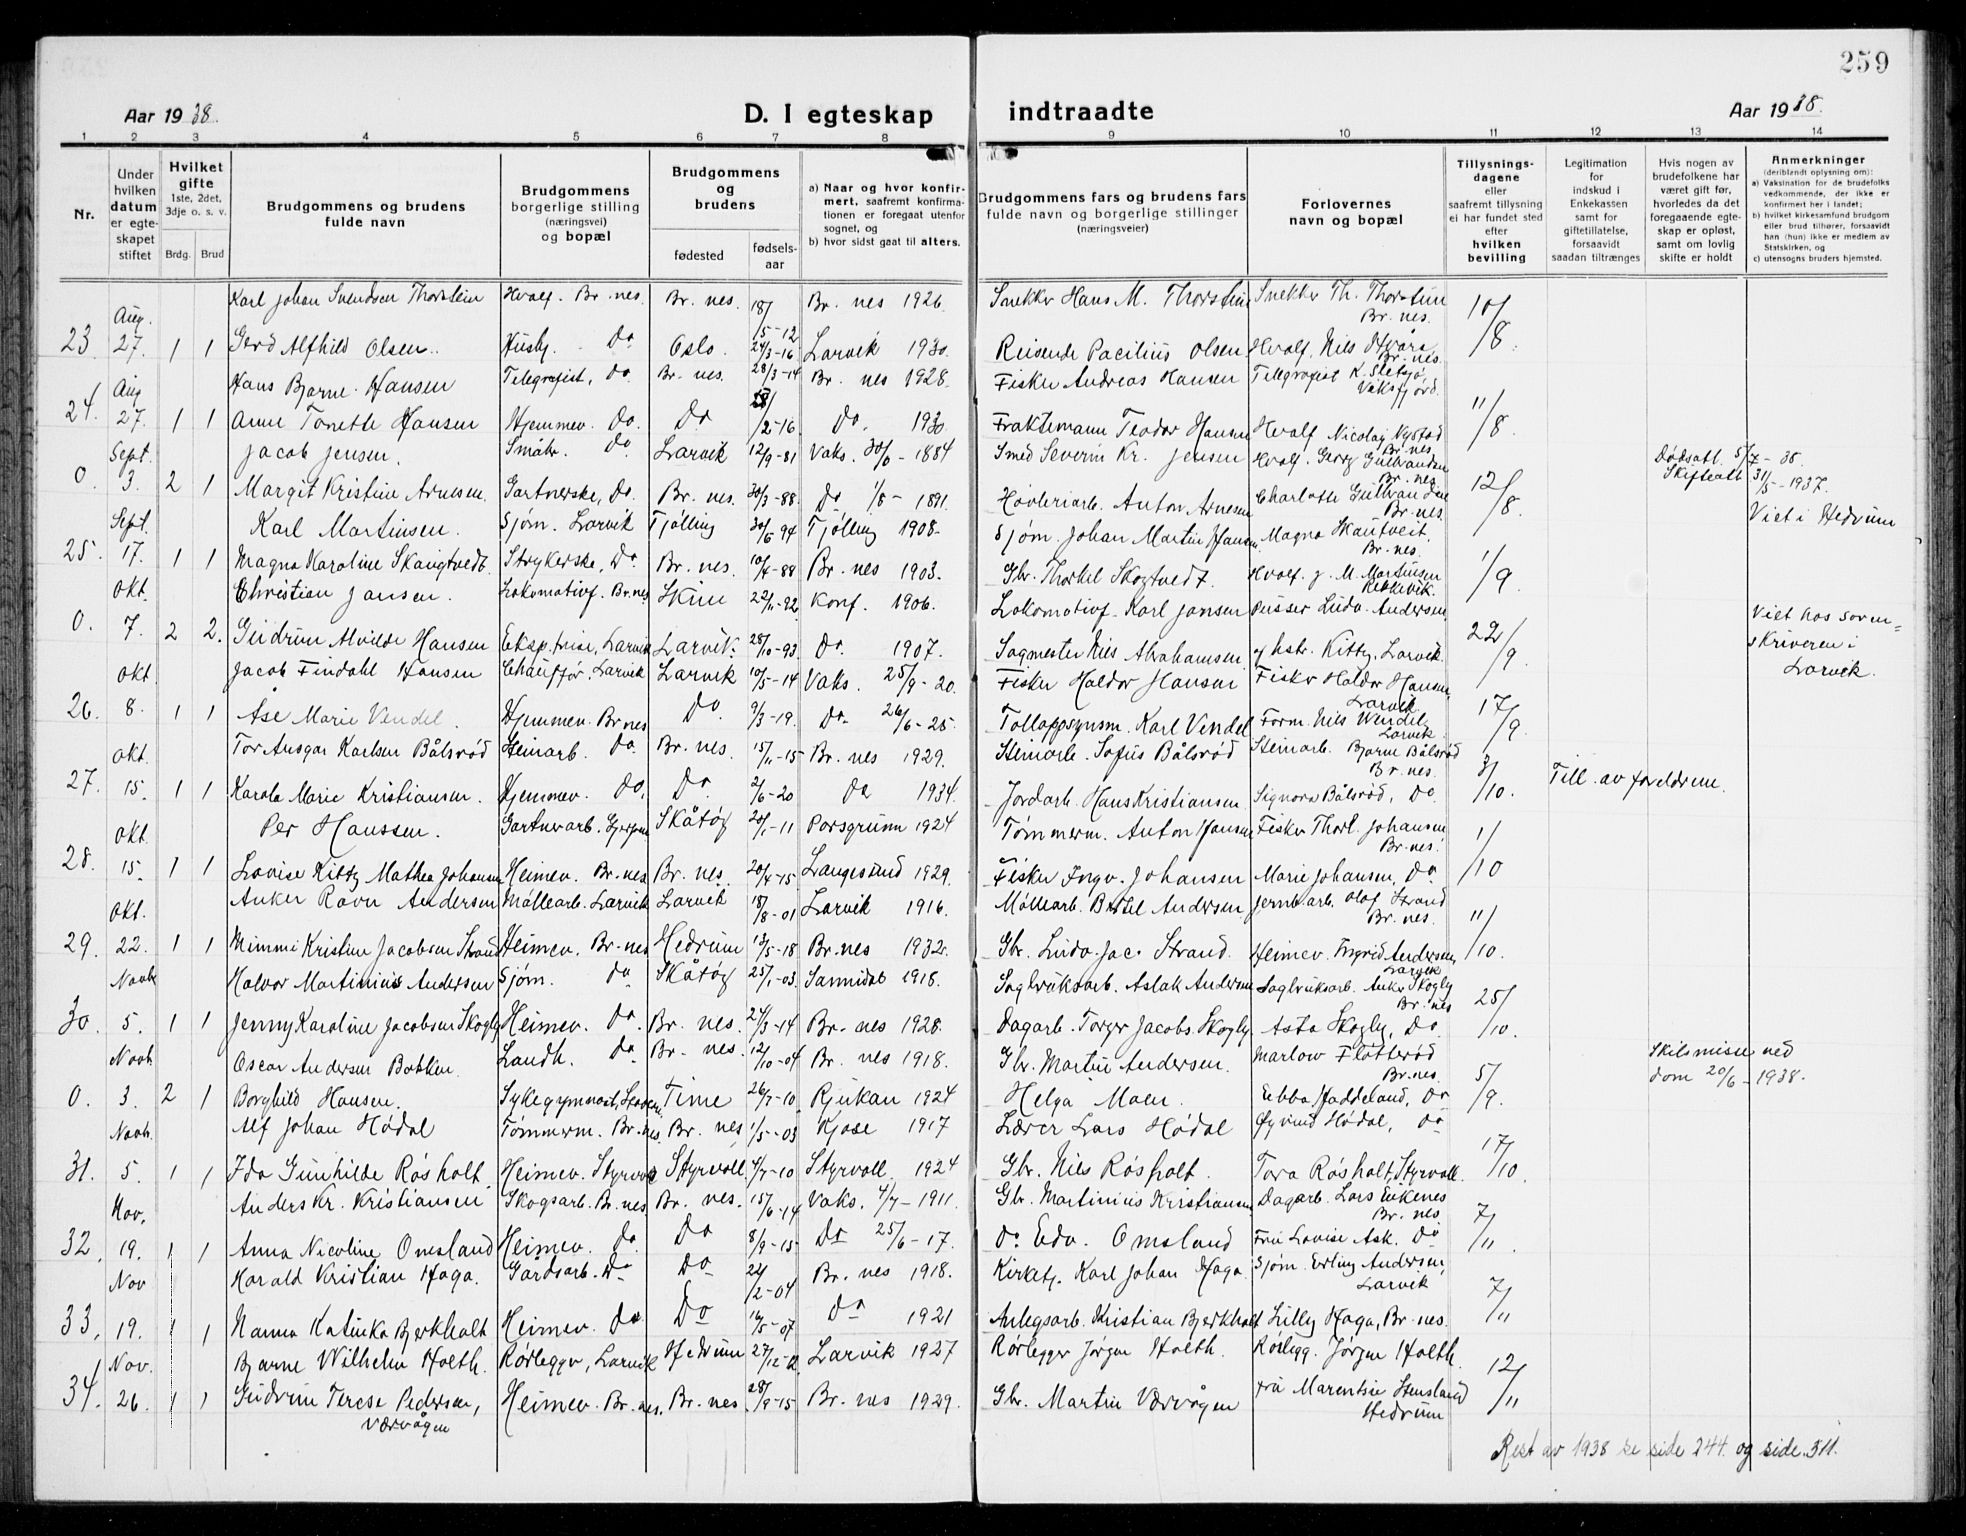 259
Aar 1938.
D. I egteskap indtraadte
Aar 1938.
1 2 3 4 5 6 7 8 9 10 11 12 13 14
Nr.
Under hvilken datum er egteskapet stiftet
Hvilket gifte 1ste, 2det, 3dje o. s. v.
Brdg. Brud
Brudgommens og brudens fulde navn
Brudgommens borgerlige stilling (næringsvei) og bopæl
Brudgommens og brudens
fødested
fødselsaar
a) Naar og hvor konfirmert, saafremt konfirmationen er foregaat utenfor sognet, og
b) hvor sidst gaat til alters.
Brudgommens fars og brudens fars fulde navn og borgerlige stillinger (næringsveier)
Forlovernes navn og bopæl
Tillysningsdagene eller saafremt tillysning ei har fundet sted efter hvilken bevilling
Legitimation for indskud i Enkekassen samt for giftetillatelse, forsaavidt saadan tiltrænges
Hvis nogen av brudefolkene har været gift før, hvorledes da det foregaaende egteskap er opløst, samt om lovlig skifte er holdt
Anmerkninger (deriblandt oplysning om):
a) Vaksination for de brudefolks vedkommende, der ikke er konfirmert her i landet;
b) hvilket kirkesamfund brudgom eller brud tilhører, forsaavidt han (hun) ikke er medlem av Statskirken, og
c) utensogns bruders hjemsted.
Aug. Karl Johan Svendsen Thorstein Hvalf. Br.nes. Br. nes. 18/5-12 Br. nes 1926. Snekker Hans M. Thorstein Snekker Th. Thorstein Br. nes. 10/8
23. 27. 1 1 Gerd Alfhild Olsen. Husbg. Do Oslo. 24/3-16 Larvik 1930. Reisende Pacilius Olsen Hvalf. Nils Br. nes.
Aug Hans Bjarne Hansen Telegrafist, do. Br. nes. 28/3-14 Br. nes 1928. Fisker Andreas Hansen Telegrafist K. 11/8
24. 27. 1 1 Anne Tonette Hansen Hjemmev. Do. Do /2-16 Do. 1930. Fraktemann Teodor Hansen Hvalf Nicolay Nystad Br. nes
Sept. Jacob Jensen. Småbr. do. Larvik 12/9-81 Vaks. 30/6-1884 Smed Severin Kr. Jensen Hvalf. Georg Gulbrandsen Br. nes 12/8 Dødsatt. 5/7-38.
0. 3. 2 1 Margit Kristine Arnesen. Gartnerske, Do. Br. nes. 30/3-88 Do 1/8-1891. Høvleriarb. Anton Arnesen Charlotte Br. nes. Skifteatt 31/5-1937. Viet i Hedrum
Sept. Karl Martinsen. Sjøm. Larvik Tjølling 30/6 94 Tjølling 1908. Sjøm. Johan Martin Hansen Magna Skautveit. Br. nes. 1/9
25. 17. 1 1 Magna Karoline Skaugtvedt. Strykerske, Do Br. nes. 10/4-88 Br. nes 1903. Gbr. Thorkel Skogtvedt. Hvalf. J. M. Martinsen Rekkevik.
Okt. Christian Jansen. Lokomotivf. Br.nes Skien 22/11-92 Konf. 1906. Lokomotivf. Karl Jansen Pusser Ludv. Andersen, 22/9 Viet hos soren=
0. 7. 2 2. Gudrun Alvilde Hansen Eksp.trise, Larvik Larvik. 28/10-93 Do. 1907. Sagmester Nils Abrahamsen. Kitty, Larvik. skriveren i Larvik.
Okt Jacob Findahl Hansen Chauffør, Larvik Larvik 10/5-14 Vaks. 25/9-20. Fisker Haldor Hansen Fisker Haldor Hansen. Larvik 17/9
26. 8. 1 1 Åse Marie Vendel. Hjemmev. Br.nes Do. 9/3-19. Do. 26/6-25. Tolloppsynsm. Karl Vendel Form. Nils Wendel Larvik
Okt. Tor Ansgar Karlsen Bålsrød Steinarb. do. Br. nes. 15/11-15 Br. nes 1929. Steinarb. Sofus Bålsrød Steinarb. Bjarne Bålsrød Br. nes. 3/10. Till. av foreldrene.
27. 15. 1 1 Karola Marie Kristiansen. Hjemmev. do, Do. 2/6-20 Do 1934. Jordarb. Hans Kristiansen Signora Bålsrød, Do.
Okt. Per Hanssen. Gartnerarb. Skåtøy 20/1-11 Porsgrunn 1924 Tømmerm. Anton Hansen Fisker Thorl. Johansen Br. nes. 1/10
28. 15. 1 1 Lovise Kitty Mathea Johansen Heimev. Br. nes Br. nes. 20/4-15 Langesund 1929. Fisker Ingv. Johansen Marie Johansen, Do
Okt. Anker Ravn Andersen Møllearb. Larvik Larvik 18/8-01 Larvik 1916. Møllearb. Bertel Andersen Jernb.arb. Olaf Strand Br. nes. 11/10.
29. 22. 1 1 Mimmi Kristine Jacobsen Strand Heimev. Br. nes Hedrum 13/5-18 Br. nes 1932. Gbr. Ludv. Jac. Strand. Heimev. Ingrid Andersen, Larvik
Novbr Halvor Martinius Andersen Sjøm. do Skåtøy 25/1-03. Sannidal 1918. Sagbruksarb. Aslak Andersen Sagbruksarb. Anker Skogly Br. nes 25/10.
30. 5. 1 1 Jenny Karoline Jacobsen Skogly Heimev. Do. Br. nes. 24/3-14 Br. nes 1928. Dagarb. Torger Jacobs. Skogly. Asta Skogly, Do.
Novb. Oscar Andersen Bakken. Landh. Do Br. nes. 12/10-04 Br. nes 1918. Gbr. Martin Andersen. Marlow Fløtterød Br. nes. 5/9. Skilsmisse ved
0. 3. 2 1 Borghild Hansen. Sykegymnast, Time 26/7-10 Rjukan 1924 Helga Moen Ebba Haddeland, Do dom 20/6-1938.
Novb. Alf Johan Hødal Tømmerm. Br. nes. Br. nes 1/5-03 Kjose 1917 Lærer Lars Hødal Øyvind Hødal, Do 17/10.
31. 5. 1 1 Ida Gunhilde Røsholt. Heimev. Styrvoll Styrvoll 4/7-10 Styrvoll. 1924 Gbr. Nils Røsholt. Tora Røsholt, Styrvoll.
Nov. Anders Kr. Kristiansen Skogsarb. Br. nes Br. nes. 15/6-14 Vaks. 4/7-1911. Gbr. Martinius Kristiansen Dagarb. Lars Eikenes Br. nes 7/11.
32. 19. 1 1 Anna Nicoline Omsland Heimev. do. Do 8/9-15 Do 25/6-17. do. Edv. Omsland Fru Lovise Ask. Do
Nov Harald Kristian Haga. Gårdsarb. Do Do 22/2-04 Br. nes 1918. Kirketj. Karl Johan Haga. Sjøm. Erling Andersen, Larvik 7/11
33. 19. 1 1 Nanna Katinka Bjerkholt Heimev. Do Do 16/5-07 Do 1921 Anlegsarb. Kristian Bjerkholt Lilly Haga, Br. nes.
Nov. Bjarne Wilhelm Holth. Rørlegger, Larvik Hedrum 27/12-12 Larvik 1927 Rørlegger Jørgen Holth. Rørlegg. Jørgen Holth. 12/11
34. 26. 1 1 Gudrun Terese Pedersen, Værvågen Heimev. Br. nes. Br. nes. 28/9-15 Br. nes 1929. Gbr. Martin Værvågen Fru Marentsie Stensland Hedrum
Rest av 1938 se side 244. og side 311.